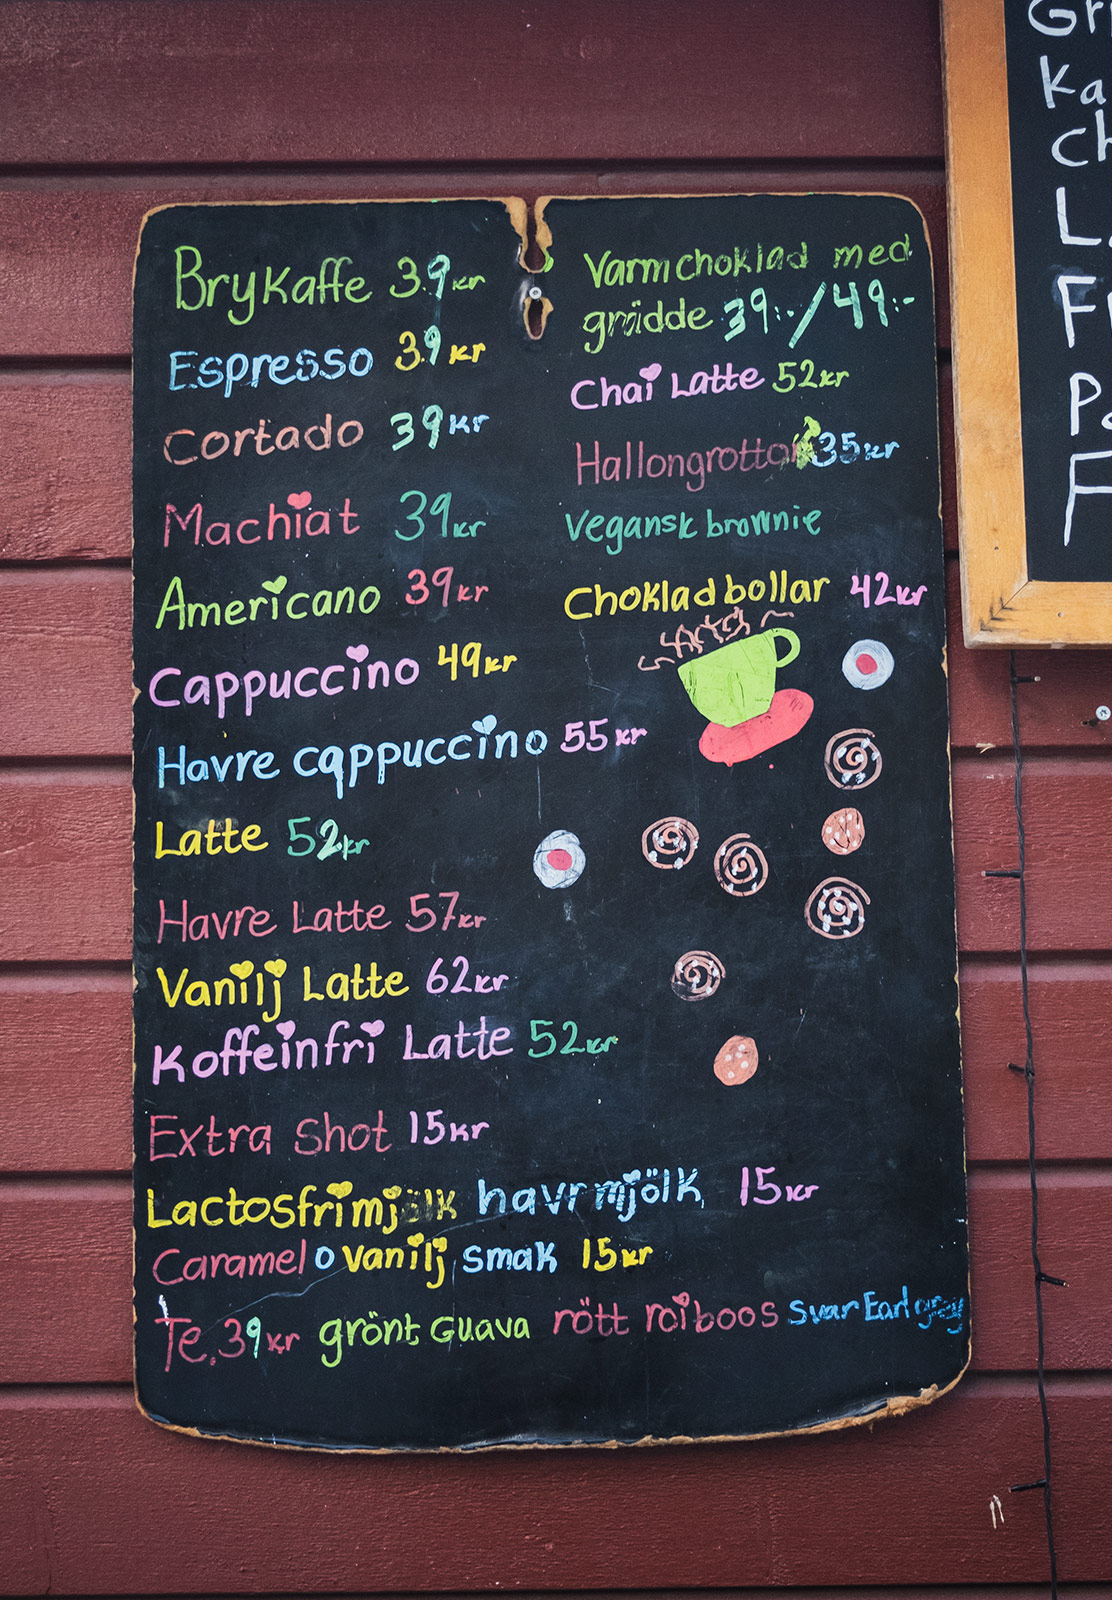 Brykaffe 39kr
Espresso 39kr
Cortado 39kr
Machiat 39kr
Americano 39kr
Cappuccino 49kr
Havre cappuccino 55kr
Latte 52kr
Havre Latte 57kr
Vanilj Latte 62kr
Koffeinfri Latte 52kr
Extra shot 15kr
Lactosfrimjölk havrmjölk 15kr
Caramel o vanilj smak 15kr
Te. 39kr grönt Guava rött roiboos svar Earl grey
Varmchoklad med
grädde 39:-/49:-
Chai Latte 52kr
Hallongrottor 35kr
Vegansk brownie
Chokladbollar 42kr